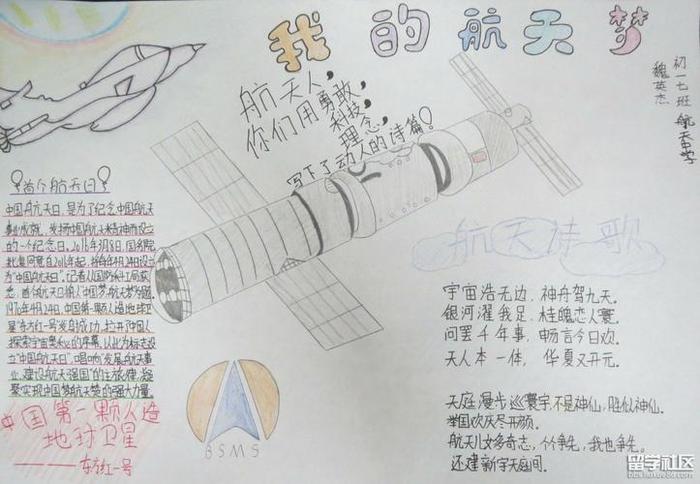 我的航天梦
初一七班 航天中学
魏英杰
航天人，
你们用勇敢，
科技，
理念，
写下了动人的诗篇！
首个航天日
中国航天日，是为了纪念中国航天
事业成就，发扬中国航天精神而设立
的一个纪念日。2016年3月8日，国务院
批复同意在2016年起，将每年4月24日设立
为“中国航天日”。记者从国防科工局获
悉，首个航天日将以中国梦，航天梦为题。
1970年4月24日，中国第一颗人造地球卫
星“东方红一号”发射成功，拉开中国人
探索宇宙奥秘的序幕，以此为标志设
立“中国航天日”，唱响“发展航天事
业，建设航天强国”的主旋律，凝
聚实现中国梦航天梦的强大力量。
中国第一颗人造
地球卫星
——东方红一号
BSMS
航天诗歌
宇宙浩无边，神舟驾九天。
银河濯我足，桂魄恋人寰。
问罢千年事，畅言今日欢。
天人本一体，华夏又开元。
天庭漫步巡寰宇，不是神仙，胜似神仙。
举国欢庆尽开颜。
航天儿女多奇志，个个争先，我也争先。
还建新宇天庭间。
留学社区
bbs.liuxue86.com